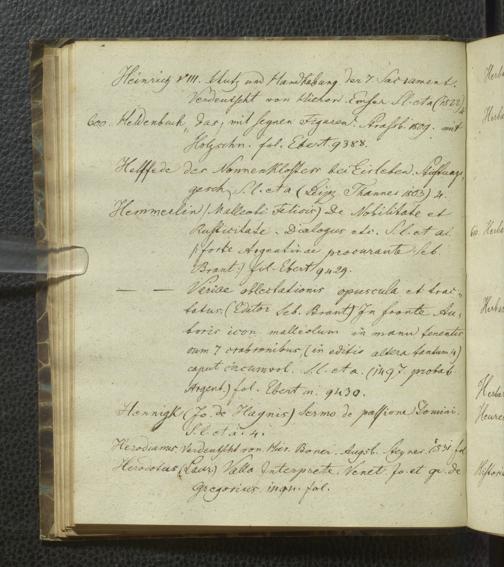 Heinrich VIII. Schutz und Handhabung der 7 Sacrament.
Verdeutscht von Hieron. Emser S. l. et a (1522) 4
600. Heldenbuch, das, mit seynen Figuren. Strassb. 1509. mit
Holzschn. fol. Ebert. 9388.
Helffede des Nonnenklosters bei Eisleben
gesch. S. l. et a (Leipz. Thanner 1503) 4.
Hemmerlin (Malleoli Felicis) De Nobilitate et
Rusticitate. Dialogus etc. S. l. et a.
(forte Argentinae procurante Seb.
Brant.) fol. Ebert 9429.
— — Variae oblectationis opuscula et trac-
tatus. (Editor Seb. Brant) In fronte Au-
toris icon malleolum in manu tenentis
cum 7 crabronibus, (in editio altera tantum 4)
caput circumvol. S. l. et a. (1497 probab.
Argent.) fol. Ebert n. 9430.
Hennigk (Jo. de Haynis) Sermo de passione Domini.
S. l. et a. 4.
Herodianus, verdeutscht von Hier. Boner. Augsb. Steyner. 1531 fol
Herodotus (Laur.) Valla Interprete. Venet. Jo. et gr. de
Gregoriis fol.
60.